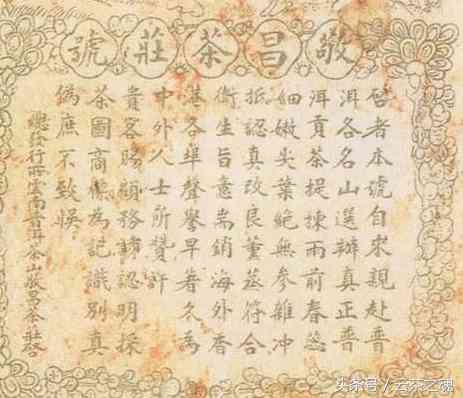 敬昌茶莊號
啓者本號自來親赴普
洱各名山選辦真正普
洱貢茶提揀雨前春蕊
細嫩尖葉絕無參雜冲
抵認真改良薰蒸符合
衛生旨意耑銷海外香
港各埠聲譽早著久為
中外人士所贊許
貴客賜顧務請認明採
茶圖商標為記識別真
偽庶不致悞
總發行所雲南普洱茶山敬昌茶莊啓
头条号 / 云茶之魂